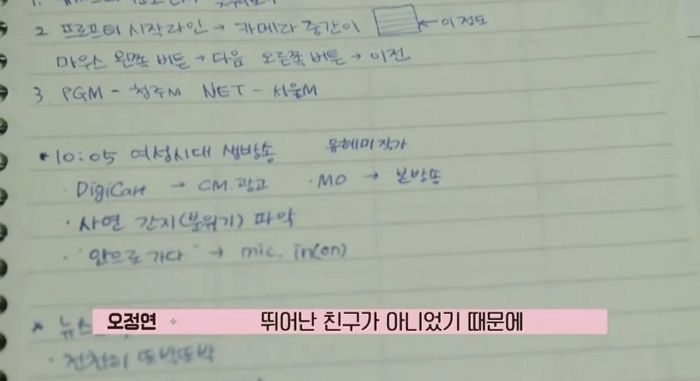 2 프로프터 시작라인 → 카메라 중간이 ← 이정도
마우스 왼쪽 버튼 → 다음 오른쪽 버튼 → 이전
3. PGM - 청주M NET - 서울M
* 10:05 여성시대 생방송 윤혜미작가
· DigiCart → CM 광고 · MO → 본방또
· 사연 간지(분위기) 파악
· "앞으로 가다" → mic. in(on)
* 뉴스
오정연 뛰어난 친구가 아니었기 때문에
· 천천히 또박또박